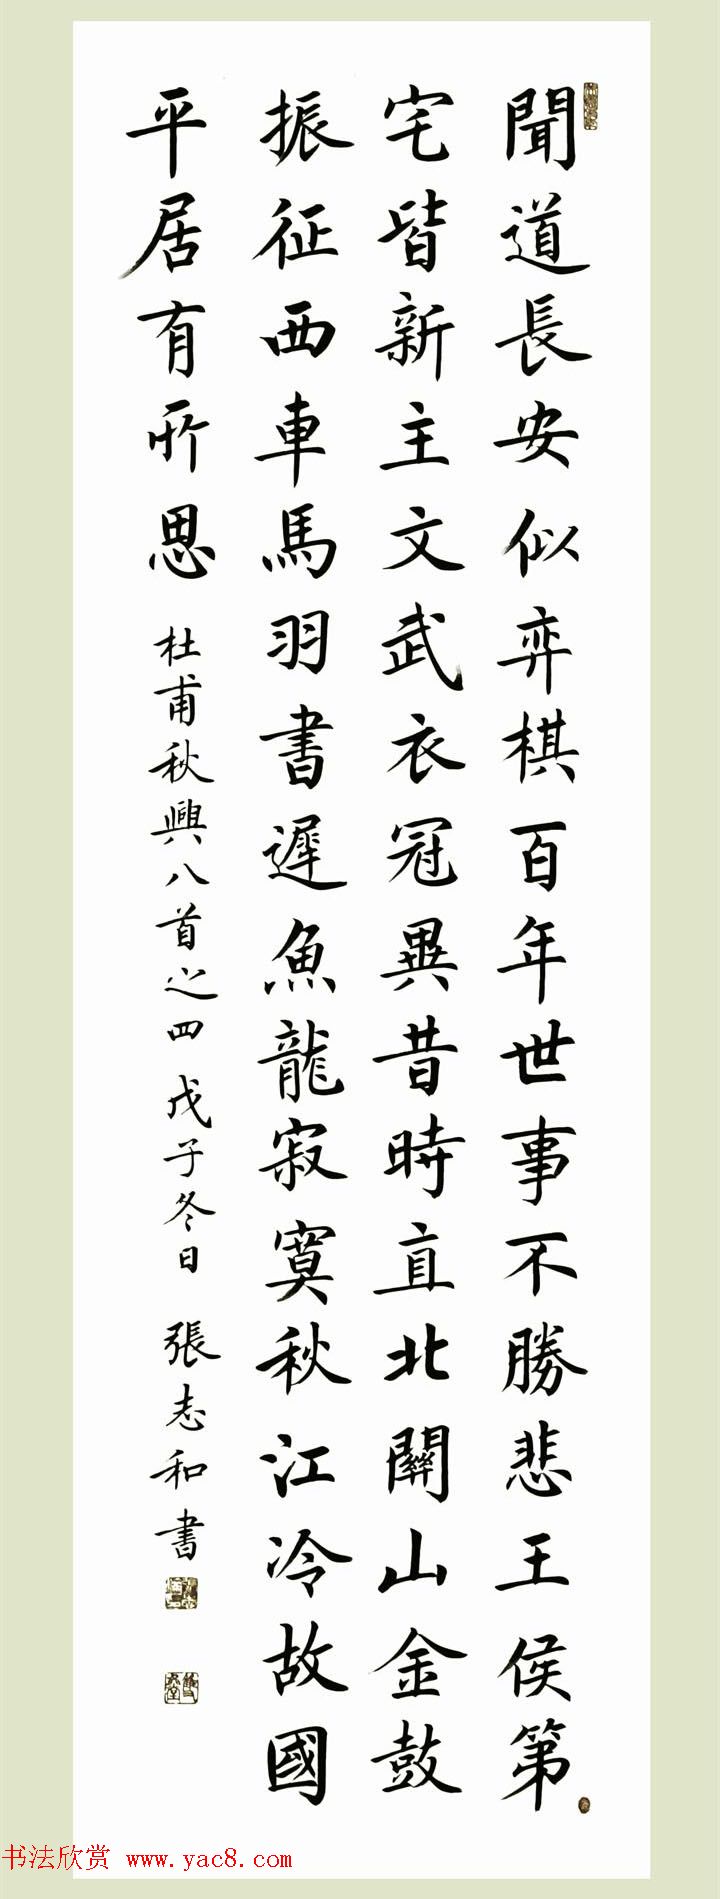 聞道長安似弈棋百年世事不勝悲王侯第
宅皆新主文武衣冠異昔時直北關山金鼓
振征西車馬羽書遲魚龍寂寞秋江冷故國
平居有所思
杜甫秋興八首之四 戊子冬日 張志和書
书法欣赏 www.yac8.com